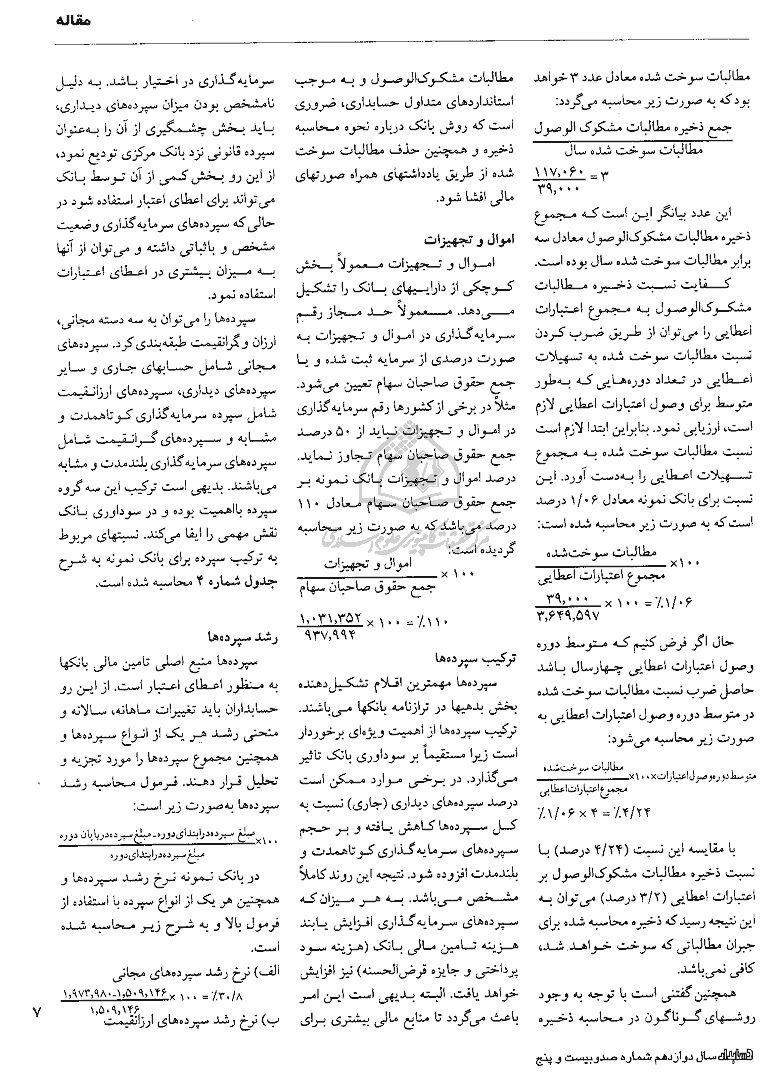 مقاله
مطالبات سوخت شده معادل عدد ۳ خواهد
بود که به صورت زیر محاسبه می‌گردد:
جمع ذخیره مطالبات مشکوک الوصول
مطالبات سوخت شده سال
۱۱۷,۰۶۰
۳۹,۰۰۰ = ۳
این عدد بیانگر این است که مجموع
ذخیره مطالبات مشکوک‌الوصول معادل سه
برابر مطالبات سوخت شده سال بوده است.
کفایت نسبت ذخیره مطالبات
مشکوک‌الوصول به مجموع اعتبارات
اعطایی را می‌توان از طریق ضرب کردن
نسبت مطالبات سوخت شده به تسهیلات
اعطایی در تعداد دوره‌هایی که به‌طور
متوسط برای وصول اعتبارات اعطایی لازم
است، ارزیابی نمود. بنابراین ابتدا لازم است
نسبت مطالبات سوخت شده به مجموع
تسهیلات اعطایی را به‌دست آورد. این
نسبت برای بانک نمونه معادل ۱/۰۶ درصد
است که به صورت زیر محاسبه شده است:
مطالبات سوخت‌شده
×۱۰۰
مجموع اعتبارات اعطایی
۳۹,۰۰۰
۳,۶۴۹,۵۹۷ × ۱۰۰ = ٪۱/۰۶
حال اگر فرض کنیم که متوسط دوره
وصول اعتبارات اعطایی چهارسال باشد
حاصل ضرب نسبت مطالبات سوخت شده
در متوسط دوره وصول اعتبارات اعطایی به
صورت زیر محاسبه می‌شود:
مطالبات سوخت‌شده
متوسط دوره وصول اعتبارات×۱۰۰×
مجموع اعتبارات اعطایی
٪۱/۰۶ × ۴ = ٪۴/۲۴
با مقایسه این نسبت (۴/۲۴ درصد) با
نسبت ذخیره مطالبات مشکوک‌الوصول بر
اعتبارات اعطایی (۳/۲ درصد) می‌توان به
این نتیجه رسید که ذخیره محاسبه شده برای
جبران مطالباتی که سوخت خواهد شد،
کافی نمی‌باشد.
همچنین گفتنی است با توجه به وجود
روشهای گوناگون در محاسبه ذخیره
مطالبات مشکوک‌الوصول و به موجب
استانداردهای متداول حسابداری، ضروری
است که روش بانک درباره نحوه محاسبه
ذخیره و همچنین حذف مطالبات سوخت
شده از طریق یادداشتهای همراه صورتهای
مالی افشا شود.
اموال و تجهیزات
اموال و تجهیزات معمولاً بخش
کوچکی از داراییهای بانک را تشکیل
می‌دهد. معمولاً حد مجاز رقم
سرمایه‌گذاری در اموال و تجهیزات به
صورت درصدی از سرمایه ثبت شده و یا
جمع حقوق صاحبان سهام تعیین می‌شود.
مثلاً در برخی از کشورها رقم سرمایه‌گذاری
در اموال و تجهیزات نباید از ۵۰ درصد
جمع حقوق صاحبان سهام تجاوز نماید.
درصد اموال و تجهیزات بانک نمونه بر
جمع حقوق صاحبان سهام معادل ۱۱۰
درصد می‌باشد که به صورت زیر محاسبه
گردیده است:
اموال و تجهیزات
× ۱۰۰
جمع حقوق صاحبان سهام
۱,۰۳۱,۳۵۲
۹۳۷,۹۹۴ × ۱۰۰ = ٪۱۱۰
ترکیب سپرده‌ها
سپرده‌ها مهمترین اقلام تشکیل‌دهنده
بخش بدهیها در ترازنامه بانکها می‌باشند.
ترکیب سپرده‌ها از اهمیت ویژه‌ای برخوردار
است زیرا مستقیماً بر سوداوری بانک تاثیر
می‌گذارد. در برخی موارد ممکن است
درصد سپرده‌های دیداری (جاری) نسبت به
کل سپرده‌ها کاهش یافته و بر حجم
سپرده‌های سرمایه‌گذاری کوتاهمدت و
بلندمدت افزوده شود. نتیجه این روند کاملاً
مشخص می‌باشد. به هر میزان که
سپرده‌های سرمایه‌گذاری افزایش یابند
هزینه تامین مالی بانک (هزینه سود
پرداختی و جایزه قرض‌الحسنه) نیز افزایش
خواهد یافت. البته بدیهی است این امر
باعث می‌گردد تا منابع مالی بیشتری برای
سرمایه‌گذاری در اختیار باشد. به دلیل
نامشخص بودن میزان سپرده‌های دیداری،
باید بخش چشمگیری از آن را به‌عنوان
سپرده قانونی نزد بانک مرکزی تودیع نمود،
از این رو بخش کمی از آن توسط بانک
می‌تواند برای اعطای اعتبار استفاده شود در
حالی‌که سپرده‌های سرمایه‌گذاری وضعیت
مشخص و باثباتی داشته و می‌توان از آنها
به میزان بیشتری در اعطای اعتبارات
استفاده نمود.
سپرده‌ها را می‌توان به سه دسته مجانی،
ارزان و گرانقیمت طبقه‌بندی کرد. سپرده‌های
مجانی شامل حسابهای جاری و سایر
سپرده‌های دیداری، سپرده‌های ارزانقیمت
شامل سپرده سرمایه‌گذاری کوتاهمدت و
مشابه و سپرده‌های گرانقیمت شامل
سپرده‌های سرمایه‌گذاری بلندمدت و مشابه
می‌باشند. بدیهی است ترکیب این سه گروه
سپرده بااهمیت بوده و در سوداوری بانک
نقش مهمی را ایفا می‌کند. نسبتهای مربوط
به ترکیب سپرده برای بانک نمونه به شرح
جدول شماره ۴ محاسبه شده است.
رشد سپرده‌ها
سپرده‌ها منبع اصلی تامین مالی بانکها
به منظور اعطای اعتبار است. از این رو
حسابداران باید تغییرات ماهانه، سالانه و
منحنی رشد هر یک از انواع سپرده‌ها و
همچنین مجموع سپرده‌ها را مورد تجزیه و
تحلیل قرار دهند. فرمول محاسبه رشد
سپرده‌ها به‌صورت زیر است:
مبلغ سپرده در ابتدای دوره - مبلغ سپرده در پایان دوره
×۱۰۰
مبلغ سپرده در ابتدای دوره
در بانک نمونه نرخ رشد سپرده‌ها و
همچنین هر یک از انواع سپرده با استفاده از
فرمول بالا و به شرح زیر محاسبه شده
است.
الف) نرخ رشد سپرده‌های مجانی
۱,۹۷۳,۹۸۰-۱,۵۰۹,۱۴۶
۱,۵۰۹,۱۴۶ × ۱۰۰ = ٪۳۰/۸
ب) نرخ رشد سپرده‌های ارزانقیمت
۷
سال دوازدهم شماره صدوبیست و پنج